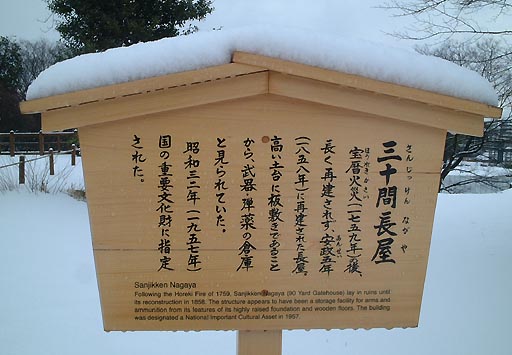 三十間長屋
さんじっけん ながや
宝暦火災(一七五九年)後、
ほうれきかさい
長く再建されず、安政五年
あんせい
(一八五八年)に再建された長屋。
高い土台に板敷きであること
から、武器・弾薬の倉庫
と見られていた。
昭和三二年(一九五七年)
国の重要文化財に指定
された。
Sanjikken Nagaya
Following the Horeki Fire of 1759, Sanjikken Nagaya (90 Yard Gatehouse) lay in ruins until
its reconstruction in 1858. The structure appears to have been a storage facility for arms and
ammunition from its features of its highly raised foundation and wooden floors. The building
was designated a National Important Cultural Asset in 1957.